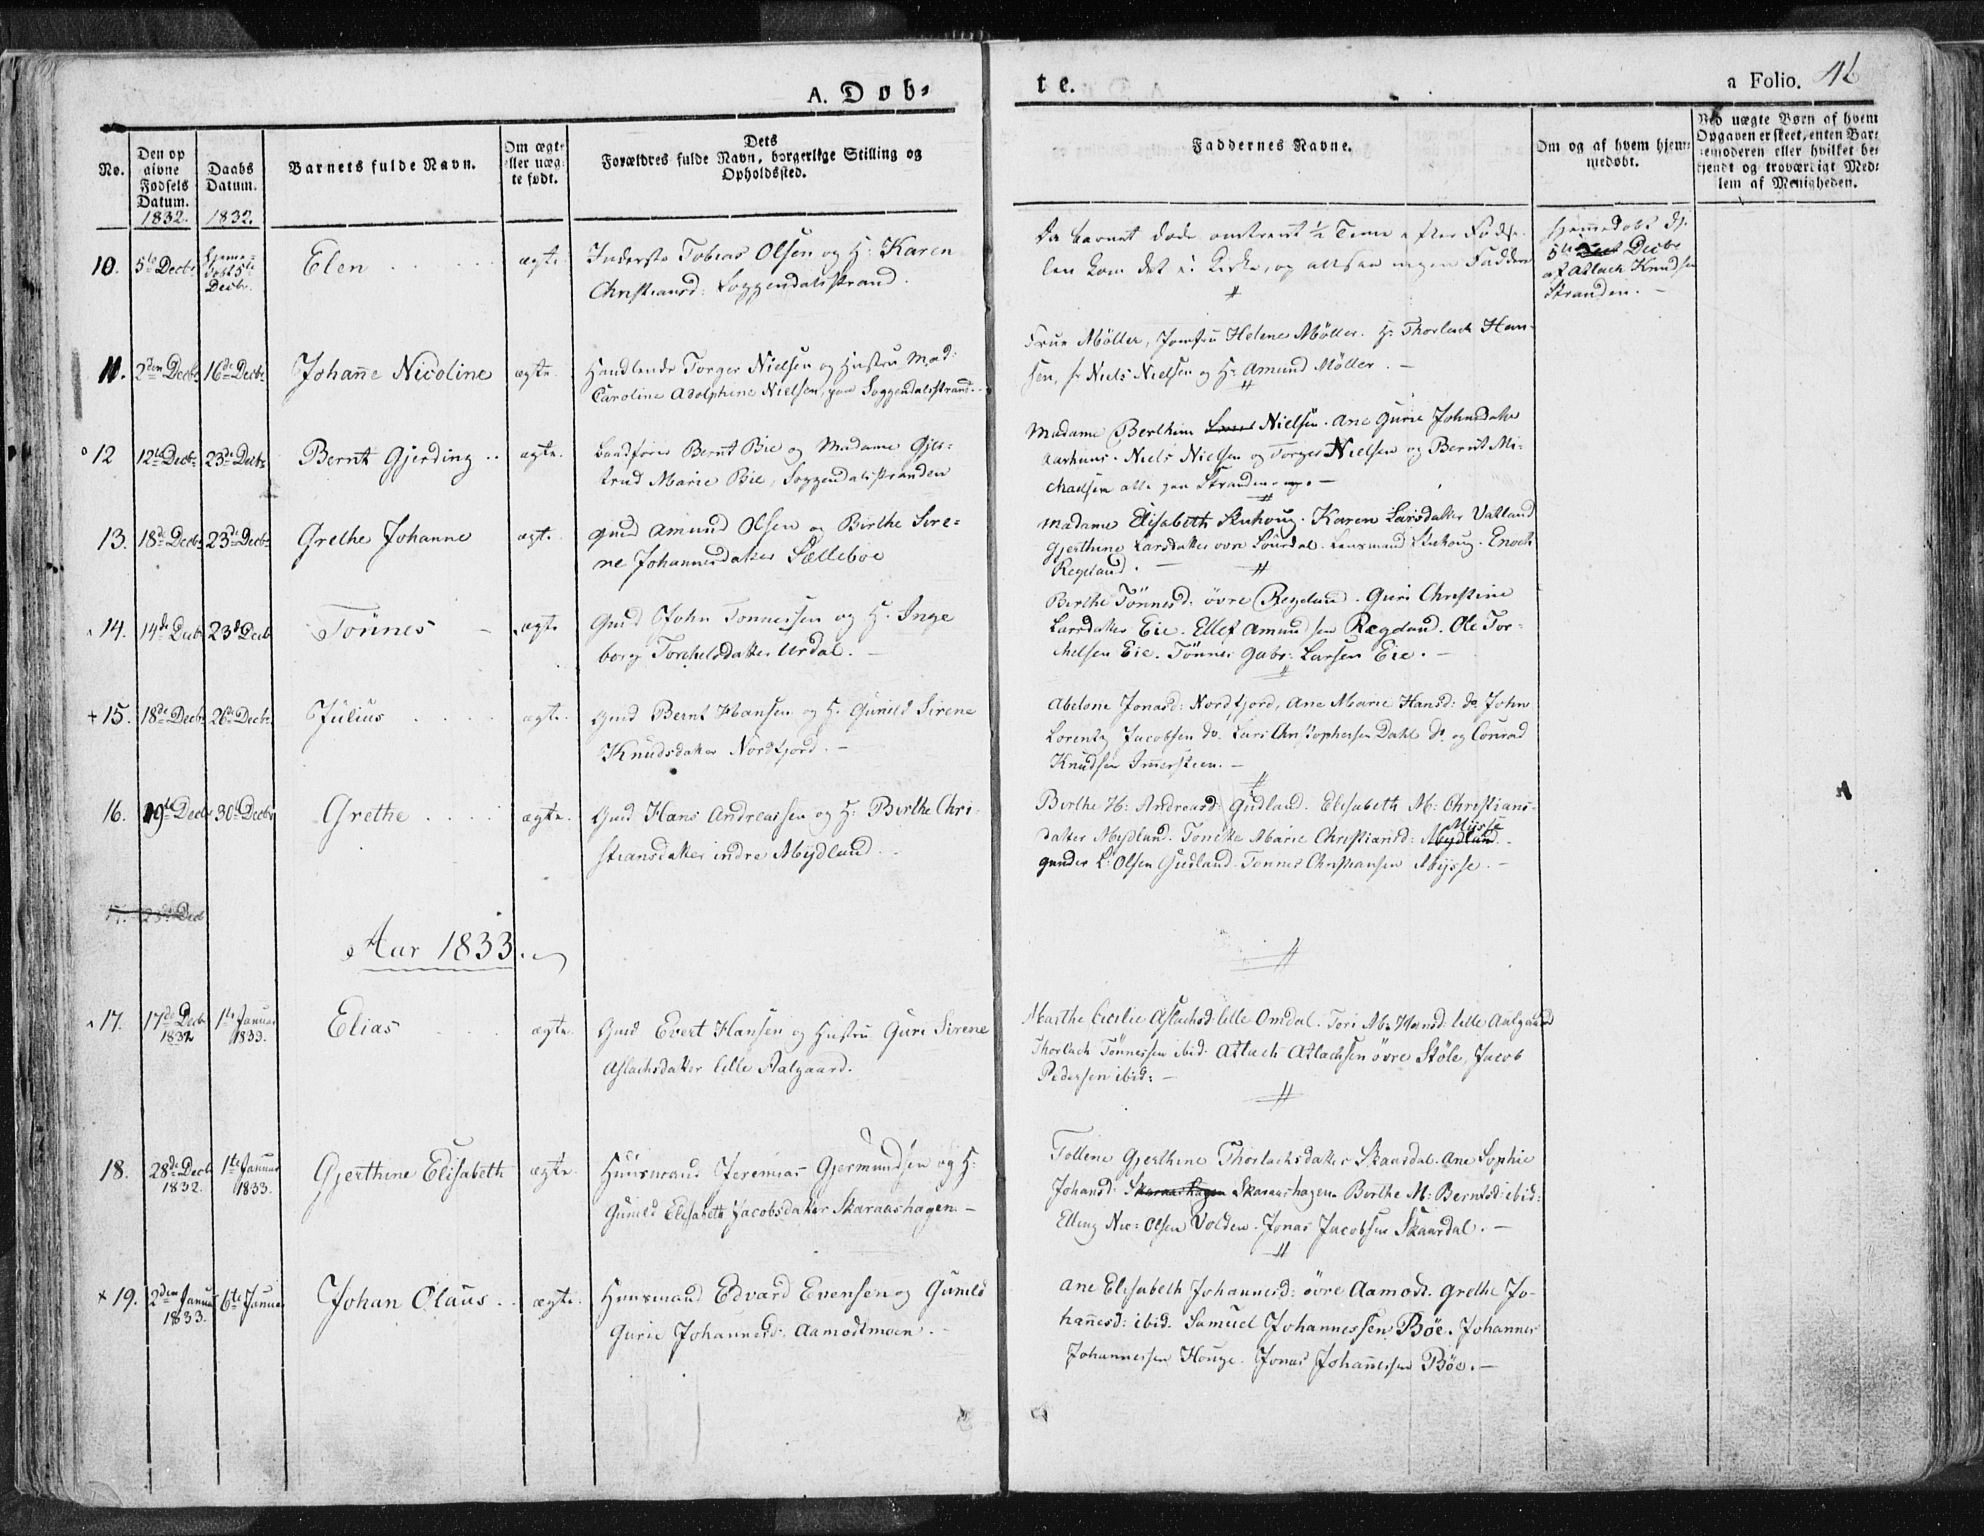 A. Døb-
te.
a Folio. 46
No.
Den op
givne
Fødsels
Datum.
1832.
Daabs
Datum.
1832.
Barnets fulde Navn.
Om ægt-
eller uæg-
te født.
Dets
Forældres fulde Navn, borgerlige Stilling og
Opholdssted.
Faddernes Navne.
Om og af hvem hjem-
medøbt.
Ved uægte Børn af hvem
Opgaven er skeet, enten Bar-
nemoderen eller hvilket be-
kjendt og troværdigt Med-
lem af Menigheden.
10. 5te Decbr Hjemme-
døbt 5te
Decbr. Elen ægte. Inderste Tobias Olsen og H: Karen
Christiansd: Soggendalsstrand.
Da barnet døde omtrent ½ Time efter Føds-
len kom det ei i Kirke, og altsaa ingen Faddere
Hjemmedøbt d.
5te Decbr
af Atlach Knudsen
Stranden. -
11. 2den Decbr 16de Decbr Johanne Nicoline ægte. Handlende Torger Nielsen og Hustru Mad:
Caroline Adolphine Nielsen, paa Soggendalsstrand.
Frue Møller, Jomfru Helene Møller. H: Thorlach Han-
sen, Hr Niels Nielsen og Hr Amund Møller. -
12 12te Decbr 23de Decbr Bernt Gjerding ægte. Bernt Bie og Madame Gjer-
trud Marie Bie, Soggendalsstranden
Madame Berthine Nielsen. Ane Gurie Johnsdatter
Aarhuus. Niels Nielsen og Torger Nielsen og Bernt Mi-
chaelsen alle paa Stranden. -
13. 18de Decbr 23de Decbr Grethe Johanne ægte. Gmd Amund Olsen og Birthe Sire-
ne Johannesdatter Sælleboe
Madame Elisabeth Stuhoug. Karen Larsdatter Vatland
Gjerthine Larsdatter øvre Souvdal. Lensmand Stuhoug. Enoch
Regeland. -
14. 14de Decbr 23de Decbr Tönnes - ægte Gmd John Tonnessen og H: Inge
borg Torchelsdatter Urdal. -
Birthe Tönnesd: øvre Regeland. Guri Christine
Larsdatter Eie. Ellef Amundsen Regeland. Ole Tor-
chelsen Eie. Tönnes Gabr: Larsen Eie. -
+ 15. 18de Decbr 26de Decbr Julius ægte. Gmd Bernt Hansen og H. Gunild Sirene
Knudsdatter Nordfjord. -
Abelone Jonasd: Nordfjord, Ane Marie Hansd: do John
Lorentz Jacobsen do. Lars Christophersen Dahl do og Conrad
Knudsen Immerstein. -
16. 19de Decbr 30te Decbr Grethe ægte. Gmd Hans Andreassen og H: Birthe Chri-
stiansdatter indre Mydland.
Birthe H: Andreasd: Gudland. Elisabeth M: Christians-
datter Mydland. Tonette Marie Christiansd: Mydland. Mysse
Gunder L: Olsen Gudland. Tonnes Christiansen Mysse. -
17. Dec
Aar 1833.
17. 17de Decbr
1832 1te Januar
1833. Elias ægte. Gmd Evert Hansen og Hustru Guri Sirene
Aslachsdatter lille Aalgaard.
Marthe Cecilie Aslachsd: lille Omdal. Tori M: Hansd: lille Aalgaard
Thorlach Tönnessen ibid. Atlach Atlachsen øvre Støle, Jacob
Pedersen ibid: -
18. 28de Decbr
1832. 1te Januar
1833. Gjerthine Elisabeth ægte Huusmand Jeremias Gjermundsen og H:
Gunild Elisabeth Jacobsdatter Skaraashagen. -
Tollene Gjerthine Thorlachsdatter Skaardal. Ane Sophie
Johansd: Skaraashagen Skaraashagen Birthe M: Berntsd: ibid:
Elling Nic: Olsen Volden. Jonas Jacobsen Skaardal. -
+ 19. 2den Januar
1833. 6te Januar Johan Olaus ægte. Huusmand Edvard Evensen og Gunild
Gurie Johannesd. Aamodtmoen. -
Ane Elisabeth Johannesd: øvre Aamodt. Grethe Jo-
hannesd: ibid. Samuel Johannessen Bøe. Johannes
Johannessen Houge. Jonas Johannessen Bøe. -